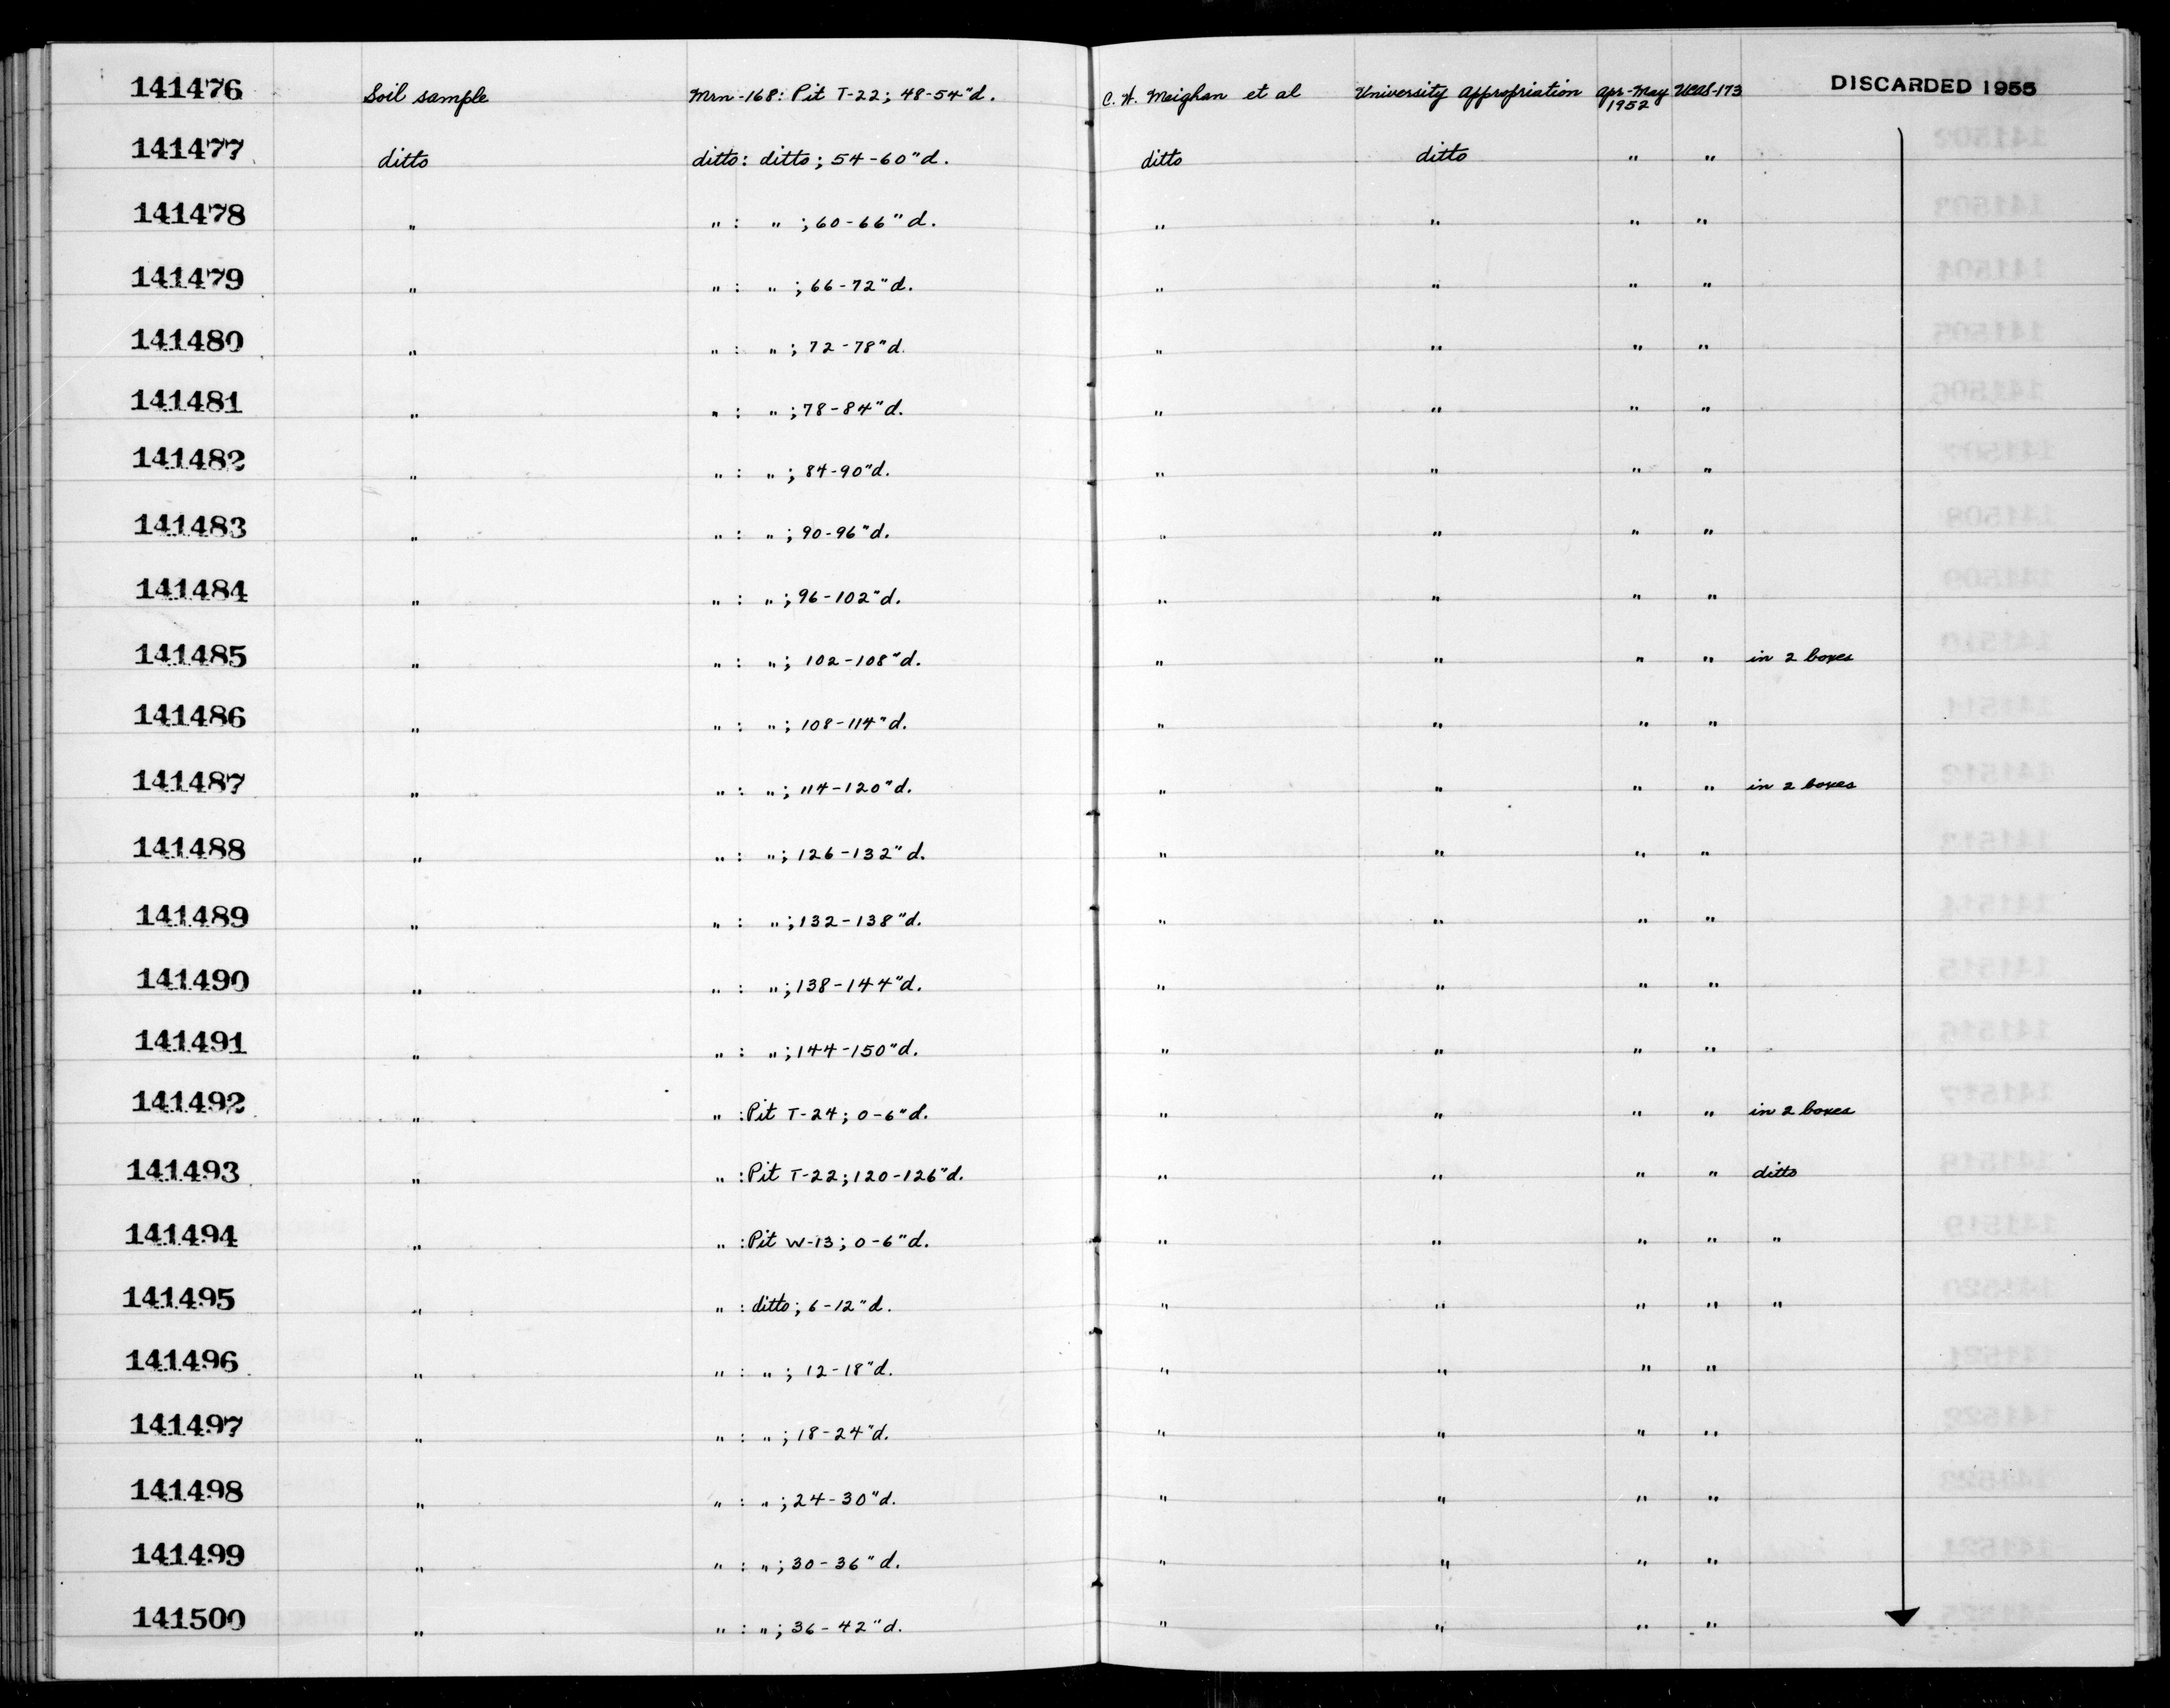 141476 Soil sample Mrn-168: Pit T-22; 48-54"d. C. W. Meighan et al University Appropriation Apr-May 1952 UCAS-173 DISCARDED 1955
141477 ditto ditto: ditto; 54-60"d. ditto ditto " "
141478 " " : " ; 60-66"d. " " " "
141479 " " : " ; 66-72"d. " " " "
141480 " " : " ; 72-78"d. " " " "
141481 " " : " ; 78-84"d. " " " "
141482 " " : " ; 84-90"d. " " " "
141483 " " : " ; 90-96"d. " " " "
141484 " " : " ; 96-102"d. " " " "
141485 " " : " ; 102-108"d. " " " " in 2 boxes
141486 " " : " ; 108-114"d. " " " "
141487 " " : " ; 114-120"d. " " " " in 2 boxes
141488 " " : " ; 126-132"d. " " " "
141489 " " : " ; 132-138"d. " " " "
141490 " " : " ; 138-144"d. " " " "
141491 " " : " ; 144-150"d. " " " "
141492 " " : Pit T-24; 0-6"d. " " " " in 2 boxes
141493 " " : Pit T-22; 120-126"d. " " " " ditto
141494 " " : Pit W-13; 0-6"d. " " " " "
141495 " " : ditto; 6-12"d. " " " " "
141496 " " : " ; 12-18"d. " " " "
141497 " " : " ; 18-24"d. " " " "
141498 " " : " ; 24-30"d. " " " "
141499 " " : " ; 30-36"d. " " " "
141500 " " : " ; 36-42"d. " " " "